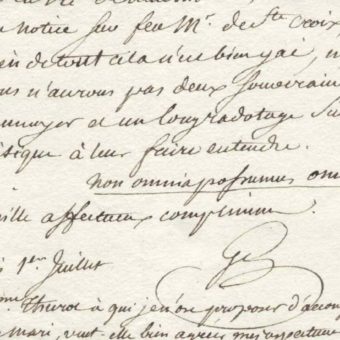 notice sur feu Mr. de Ste Croix,
de tout cela n'est bien gai,
n'aurons pas deux souverains
et un long radotage
à leur faire entendre.
non omnia possumus om
mille affectueux complimens.
1er Juillet
Thurot à qui je n'ose proposer d'accom
mari, veut-elle bien agréer mes affectueu